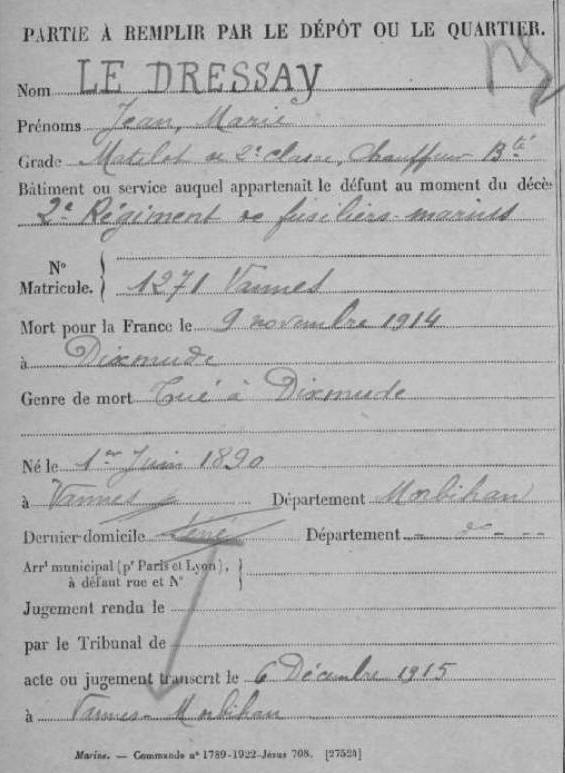 PARTIE À REMPLIR PAR LE DÉPÔT OU LE QUARTIER.
Nom LE DRESSAY
Prénoms Jean, Marie
Grade Matelot de 2e classe, chauffeur Bté
Bâtiment ou service auquel appartenait le défunt au moment du décès
2e Régiment de fusiliers-marins
No Matricule. 1271 Vannes
Mort pour la France le 9 novembre 1914
à Dixmude
Genre de mort Tué à Dixmude
Né le 1er Juin 1890
à Vannes Département Morbihan
Dernier domicile Séné Département - do - --
Arrt municipal (pr Paris et Lyon),
à défaut rue et No
Jugement rendu le
par le Tribunal de
acte ou jugement transcrit le 6 Décembre 1915
à Vannes - Morbihan
Marine. — Commande no 1789-1922-Jésus 708. [27524]